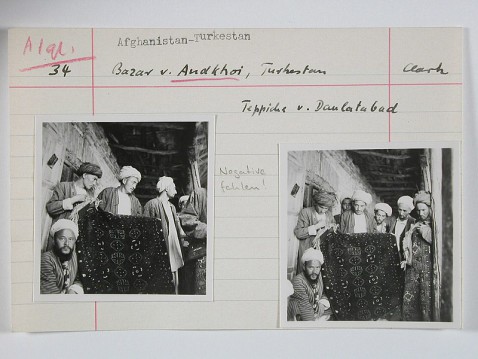 Afghanistan-Turkestan
Afgh.
34 Bazar v. Andkhoi, Turkestan
Teppiche v. Daulatabad
Negative
fehlen!